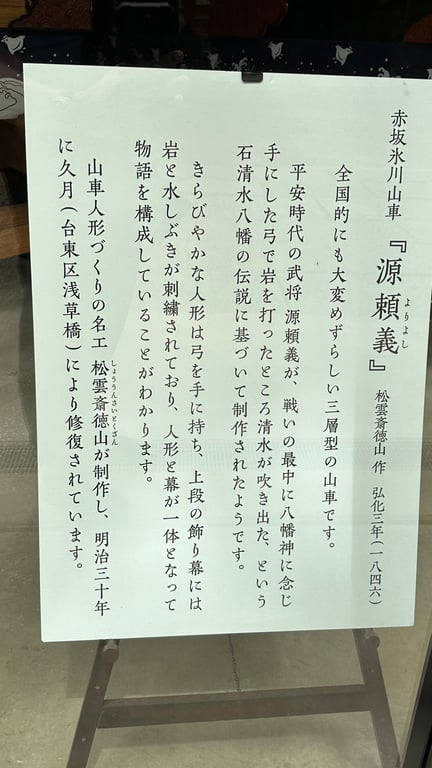 赤坂氷川山車『源頼義』松雲斎徳山 作 弘化三年(一八四六)
よりよし
全国的にも大変めずらしい三層型の山車です。
平安時代の武将 源頼義が、戦いの最中に八幡神に念じ
手にした弓で岩を打ったところ清水が吹き出た、という
石清水八幡の伝説に基づいて制作されたようです。
きらびやかな人形は弓を手に持ち、上段の飾り幕には
岩と水しぶきが刺繍されており、人形と幕が一体となって
物語を構成していることがわかります。
山車人形づくりの名工 松雲斎徳山が制作し、明治三十年
しょううんさいとくざん
に久月(台東区浅草橋)により修復されています。